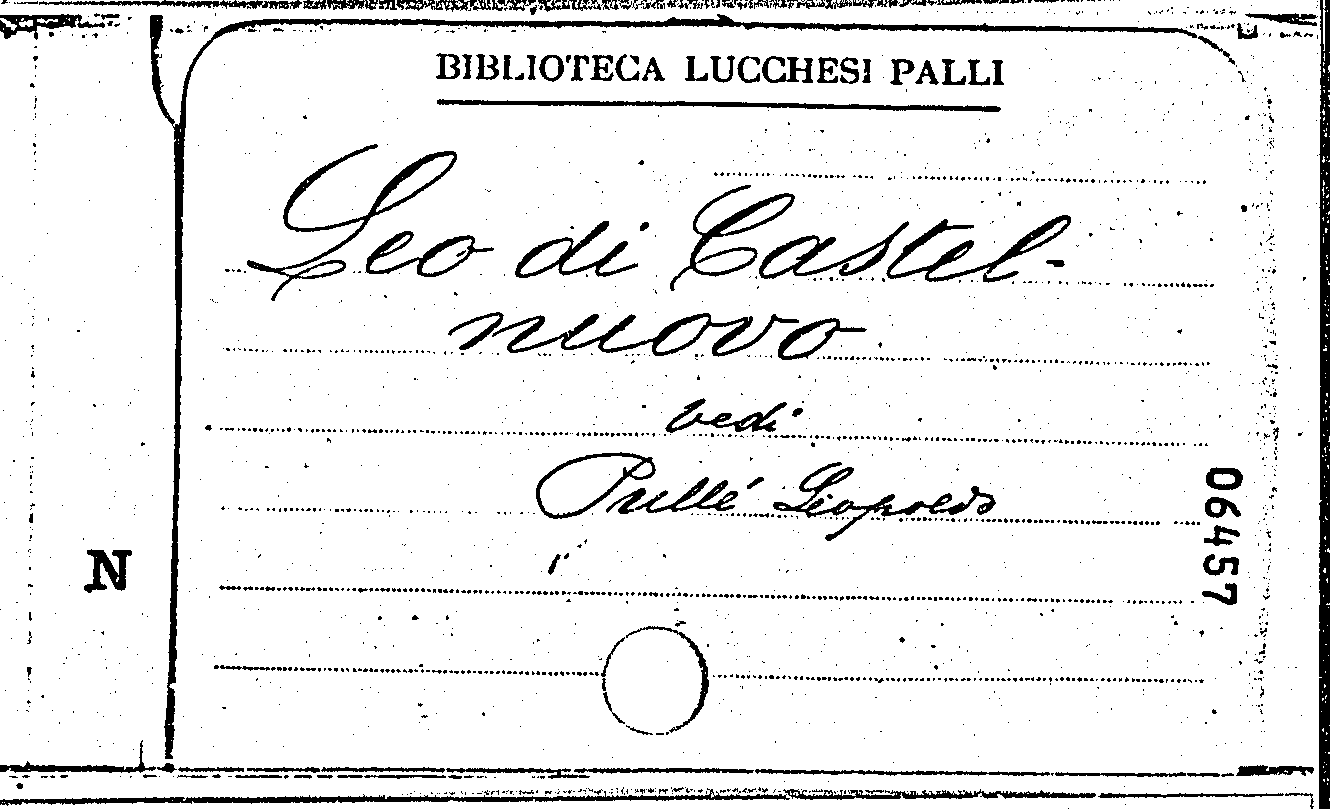 BIBLIOTECA LUCCHESI PALLI
Leo di Castel-
nuovo
vedi
Pullé Leopoldo
06457
N